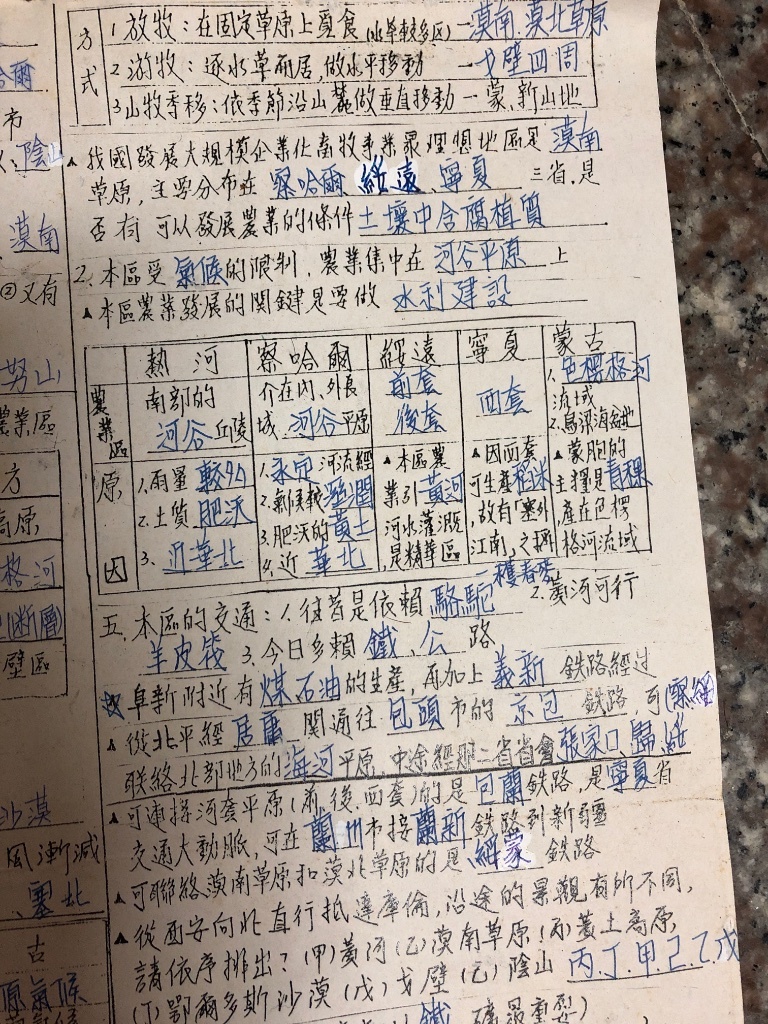 方式
1.放牧：在固定草原上覓食(水草較多區)—漠南、漠北草原
2.游牧：逐水草而居,做水平移動 → 戈壁四周
3.山牧季移：依季節沿山麓做垂直移動 — 蒙、新山地
▲我國發展大規模企業化畜牧事業最理想地區是 漠南
草原,主要分布在 察哈爾 綏遠、寧夏 三省.是
否有可以發展農業的條件 土壤中含腐植質
2.本區受 氣候的限制,農業集中在 河谷平原 上
▲本區農業發展的関鍵是要做 水利建設
熱河 察哈爾 綏遠 寧夏 蒙古
農業區
南部的
河谷丘陵
介在內、外長
城,河谷平原
前套
後套
西套
1.色楞格河
流域
2.烏源海盆地
原因
1.雨量 較多
2.土質 肥沃
3.近華北
1.永定河流經
2.氣候較溼潤
3.肥沃的黃土
4.近 華北
▲本區農
業引黃河
河水灌溉
,是精華區
▲因西套
可生產稻米
,故有「塞外
江南」之稱
▲蒙胞的
主糧是青稞
,產在色楞
格河流域
種春麥
五.本區的交通：1.往昔是依賴 駱駝 2.黃河可行
羊皮筏 3.今日多賴 鐵、公 路
阜新附近有煤石油的生產,再加上 義新 鐵路經過
▲從北平經 居庸 関通往 包頭 市的 京包 鐵路,可(察綏
聯絡北部地方的海河平原,中途經那二省省會張家口、歸綏
▲可連接河套平原(前、後、西套)的是 包蘭鐵路,是寧夏省
交通大動脈,可在 蘭州市接蘭新 鐵路到新疆
▲可聯絡漠南草原和漠北草原的是 綏蒙 鐵路
▲從西安向北直行抵達庫倫,沿途的景觀有所不同,
請依序排出?(甲)黃河(乙)漠南草原(丙)黃土高原
(丁)鄂爾多斯沙漠(戊)戈壁(己)陰山 丙.丁.甲.己.乙.戊
哈爾
市
陰山
漠南
②又有
努山
農業區
方
高原
格河
(斷層)
壁區
沙漠
風漸減
、塞北
古
原氣候